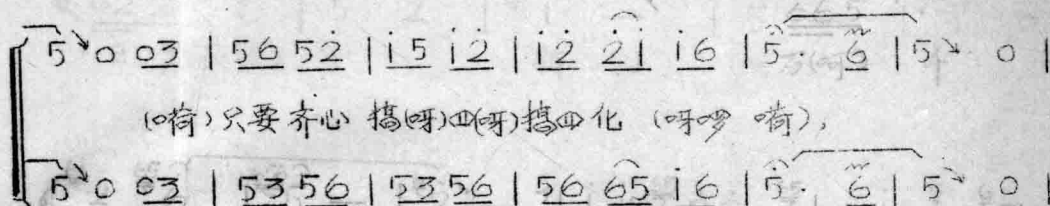 5 0 03 | 56 52̇ | i̇5 i̇2̇ | i̇2̇ 2̇i̇ i̇6 | 5̇. 6 | 5 0 |
(嗬)只要齐心 搞(呀)四(呀)搞四化 (呀啰 嗬),
5 0 03 | 53 56 | 53 56 | 56 65 i̇6 | 5̇. 6 | 5 0 |